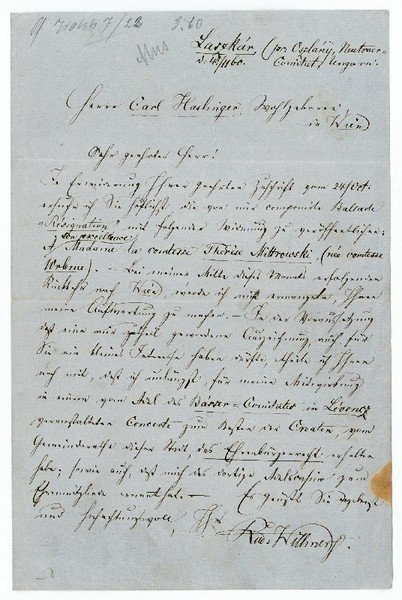 7/22 3.60
Laszkár, (pr. Oszlány, Neutraer-
d. /1160. Comitat, Ungarn.
Herrn Carl Haslinger Wohlgeboren
in Wien
Sehr geehrter Herr!
In Erwiderung Ihrer geehrten Zuschrift vom 24/Oct.
ersuche ich Sie höflichst, die von mir componirte Ballade
„Résignation" mit folgender Widmung zu veröffentlichen:
à Madame la comtesse Thérèse Mittrowski (née comtesse
Wrbna). – Bei meiner Mitte dieses Monats erfolgenden
Rückkehr nach Wien, werde ich nicht ermangeln, Ihnen
meine Aufwartung zu machen. – In der Voraussetzung
daß eine mir zu Theil gewordene Auszeichnung, auch für
Sie ein kleines Interesse haben dürfte, theile ich Ihnen
noch mit, daß ich unlängst, für meine Mitwirkung
in einem vom Adel des Barser-Comitats in Lévencz
veranstalteten Concerte zum Besten der Croaten, vom
Gemeinderathe dieser Stadt, das Ehrenbürgerrecht erhalten
habe; sowie auch, daß mich das dortige Casino zum
Ehrenmitgliede ernannt hat. – Es grüßt Sie ergebenst
und hochachtungsvoll, Ihr
Rud. Willmers.